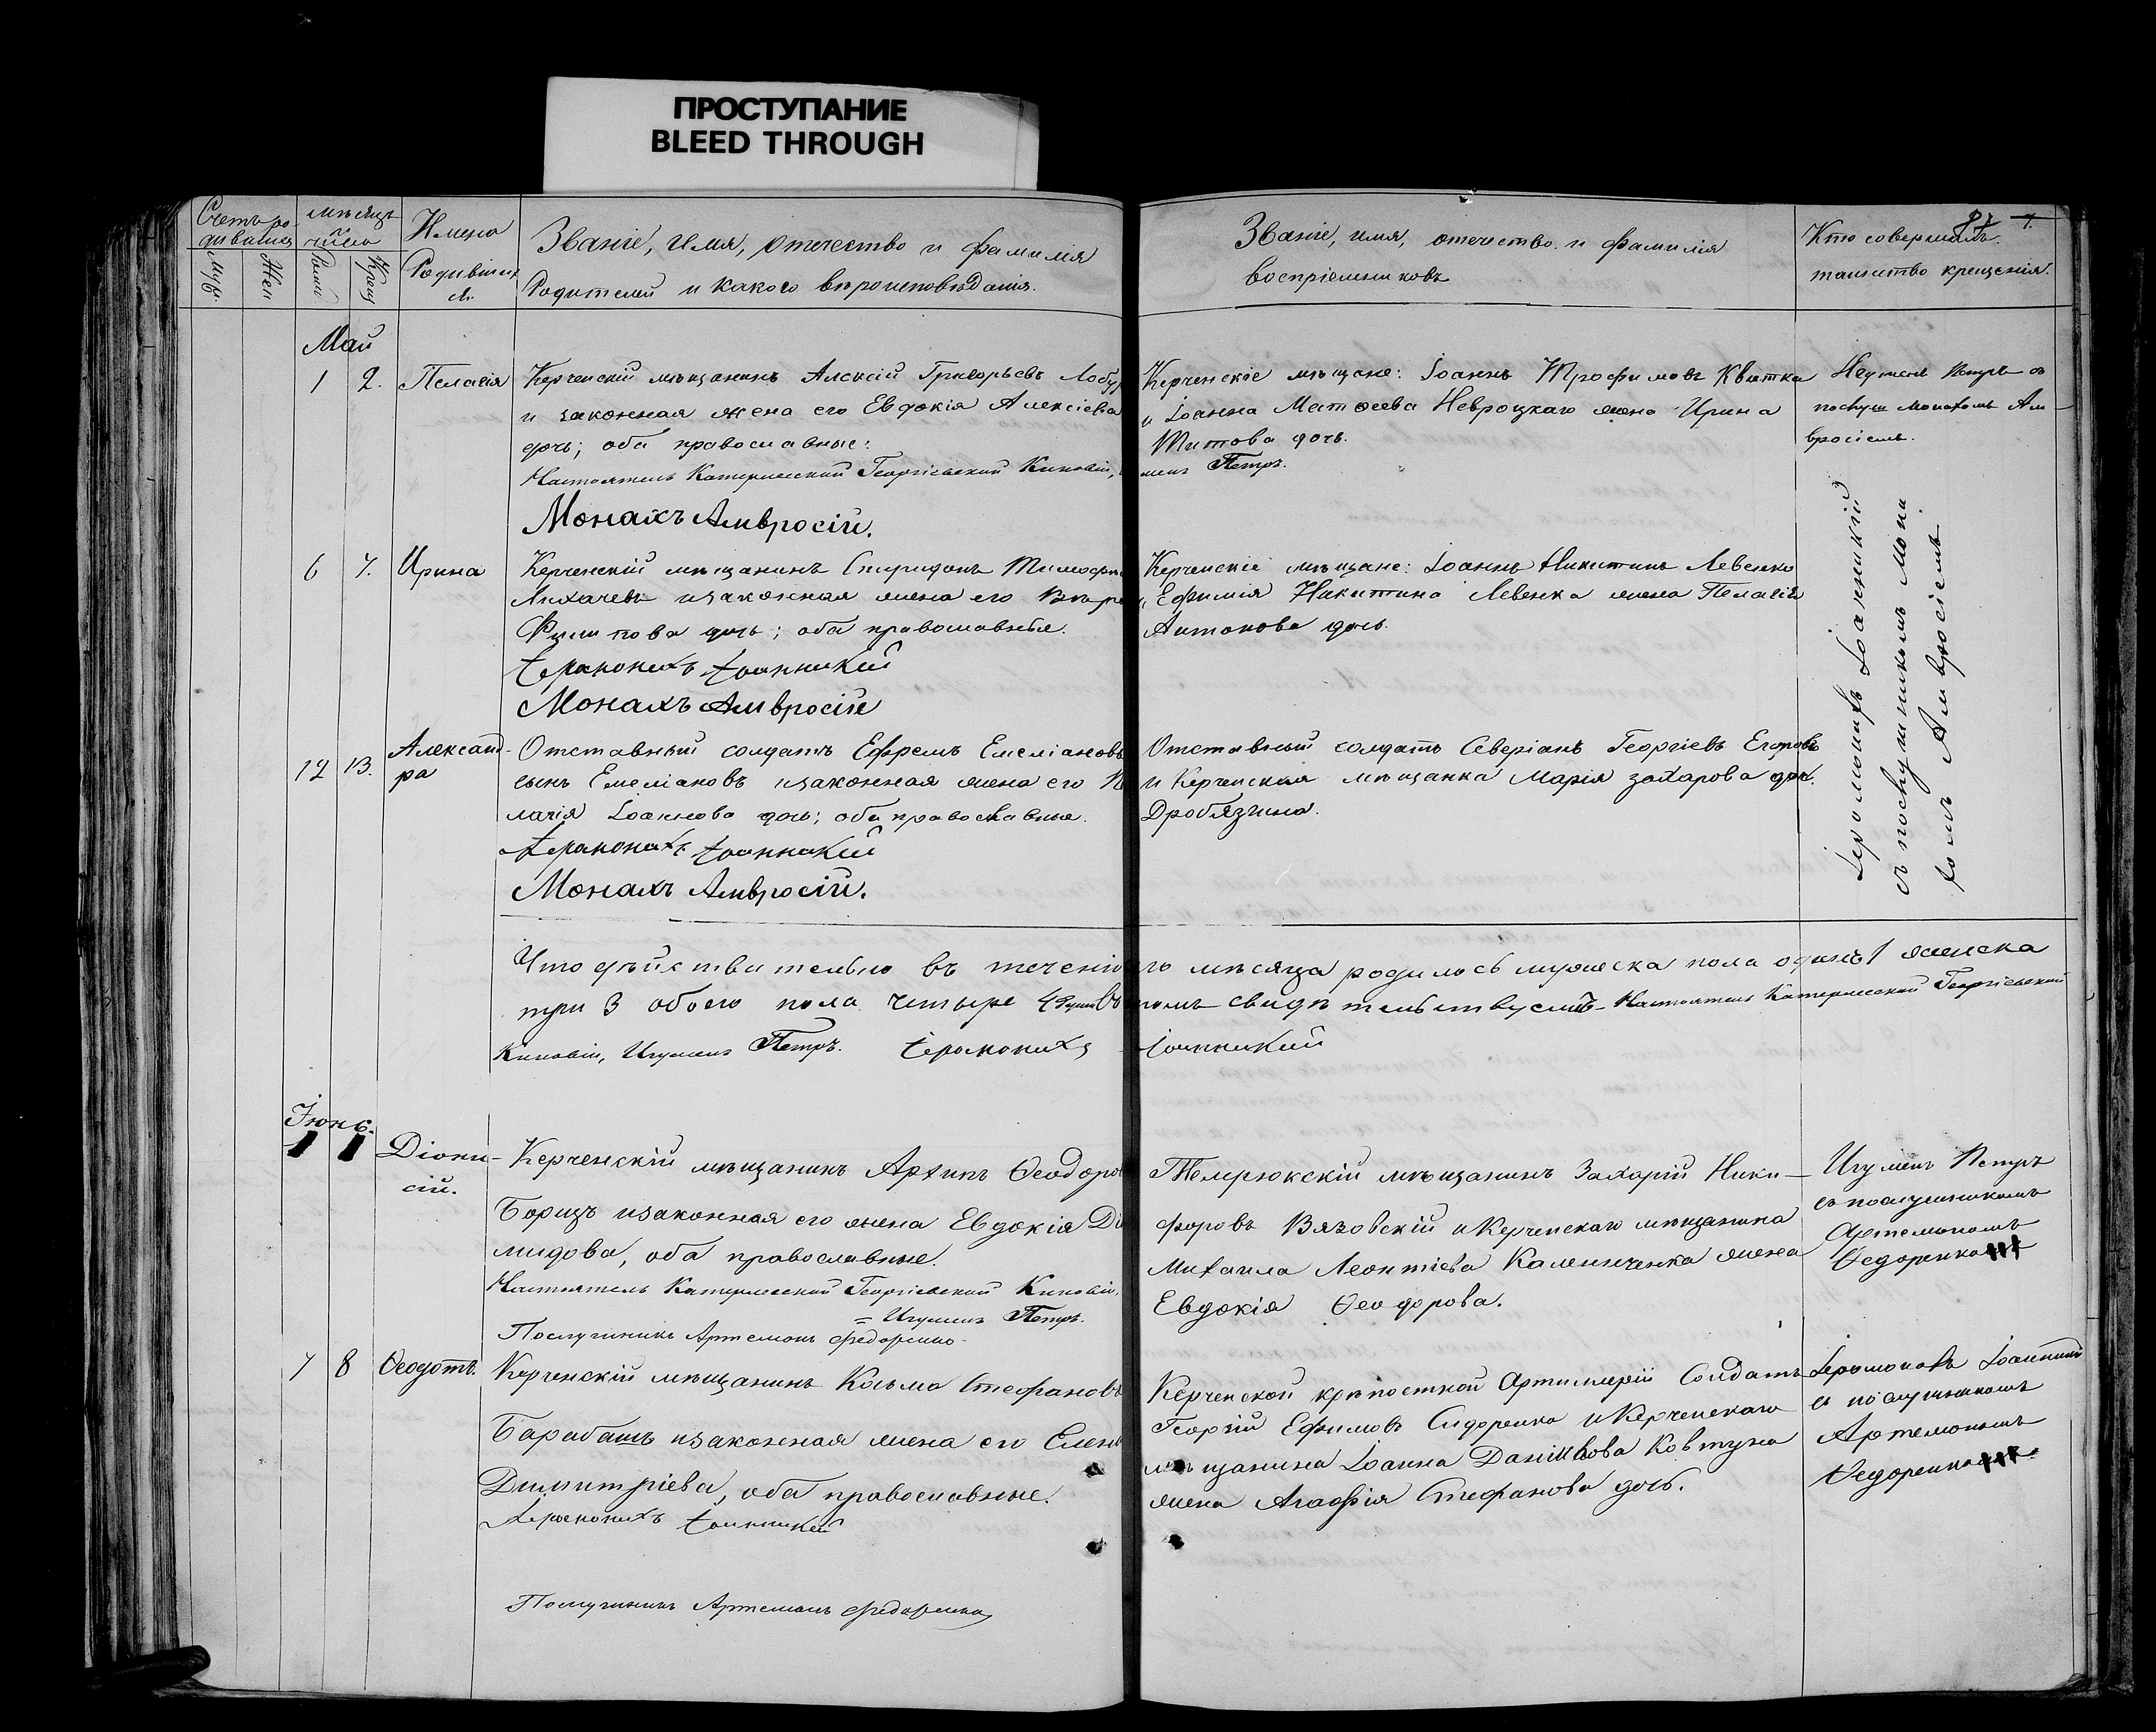 ПРОСТУПАНИЕ
BLEED THROUGH
Счетъ ро-
дившихся
Муж.
Жен
мѣсяцъ
число
Рожд
Крещ
Имена
Родивших
ся.
Званіе, имя, отечество и фамилія
Родителей и какого вѣроисповѣданія.
Званіе, имя, отечество и фамилія
воспріемниковъ
Кто совершалъ
таинство крещенія.
Май
1 2. Пелагія
Керченскій мѣщанинъ Алексій Григорьевъ
и законная жена его Евдокія Алексіева
дочь; оба православные:
Настоятель Катерлесской Георгіевской Киновіи,
Монахъ Амвросій.
Керченскіе мѣщане: Іоаннъ Трофимовъ Квитка
и Іоанна Матѳеева Невроцкаго жена Ирина
Титова дочь.
менъ Петръ.
Игуменъ Петръ съ
послуш монахомъ Ам
вросіемъ.
6 7. Ирина
Керченскій мѣщанинъ Спиридонъ Тимофе
Лихачевъ и законная жена его Вѣра
дочь; оба православные.
Іеромонахъ Іоанникій
Монахъ Амвросій
Керченскіе мѣщане: Іоаннъ Никитинъ Левенко
и Ефимія Никитина Левенка жена Пелагія
Антонова дочь.
Іеромонахъ Іоанникій
съ послушникомъ мона
хомъ Амвросіемъ
12 13. Александ-
ра
Отставный солдатъ Ефремъ Емеліановъ
сынъ Емеліановъ и законная жена его Пе
лагія Іоаннова дочь; оба православные.
Іеромонахъ Іоанникій
Монахъ Амвросій.
Отставный солдатъ Северіанъ Георгіевъ Егоровъ
и Керченская мѣщанка Марія Захарова доч.
Дробязгина.
Что дѣйствительно въ теченіи
го мѣсяца родилось мужеска пола одинъ 1 женска
три 3 обоего пола четыре 4 души въ
томъ свидѣтельствуемъ - Настоятель Катерлесской Георгіевской
Киновіи, Игуменъ Петръ. Іеромонахъ
Іоанникій
Іюнь.
1 1 Діони-
сій.
Керченскій мѣщанинъ Архипъ Ѳеодоро
Борицъ и законная его жена Евдокія Ді
мидова, оба православные.
Настоятель Катерлесской Георгіевской Киновіи,
= Игуменъ Петръ.
Послушникъ Артемонъ Федоренко
Темрюкскій мѣщанинъ Захарій Ники-
форовъ Вязовскій и Керченскаго мѣщанина
Михаила Леонтіева Калениченка жена
Евдокія Ѳеодорова.
Игуменъ Петръ
съ послушникомъ
Артемономъ
Ѳедоренко
7 8 Ѳеодотъ.
Керченскій мѣщанинъ Косьма Стефановъ
Барабашъ и законная жена его Елена
Димитріева, оба православные.
Іеромонахъ Іоанникій
Послушникъ Артемонъ Федоренко
Керченской крѣпостной Артиллеріи Солдатъ
Георгій Ефимовъ Сидоренко и Керченскаго
мѣщанина Іоанна Даніилова Ковтуна
жена Агафія Стефанова дочь.
Іеромонахъ Іоанникій
съ послушникомъ
Артемономъ
Ѳедоренко